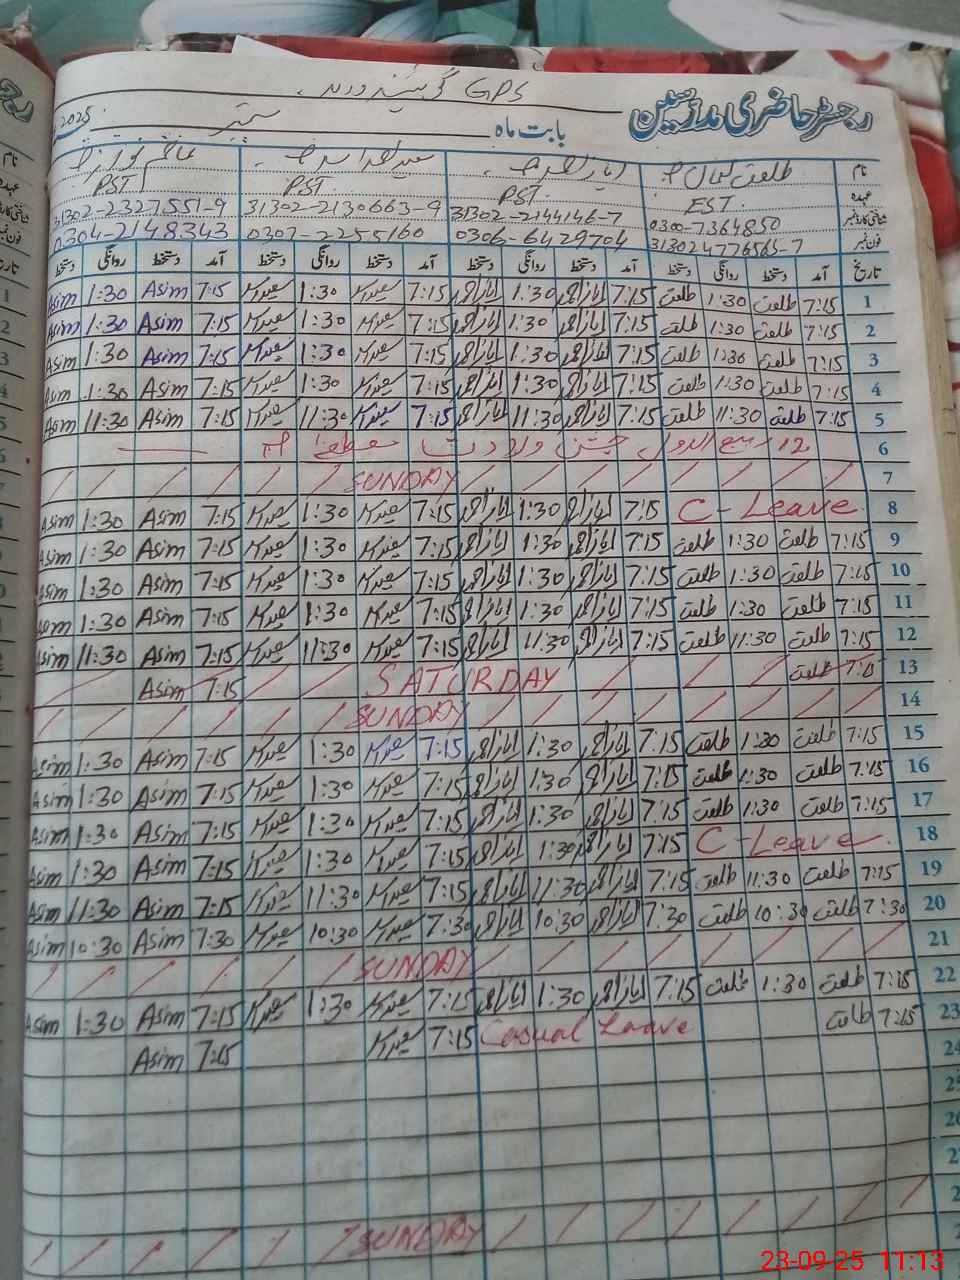 گورنمنٹ GPS
رجسٹر حاضری مدرسین
بابت ماہ ستمبر 2025
نام طلعت
عہدہ EST. PST PST PST
شناختی کارڈ نمبر 0300-7364850 31302-2144146-7 31302-2130663-9 31302-2327551-9
فون نمبر 313024776565-7 0306-6429704 0307-2255160 0304-2148343
تاریخ آمد دستخط روانگی دستخط آمد دستخط روانگی دستخط آمد دستخط روانگی دستخط آمد دستخط روانگی دستخط
1 7:15 طلعت 1:30 طلعت 7:15 ایاز احمد 1:30 ایاز احمد 7:15 سعید 1:30 سعید 7:15 Asim 1:30 Asim
2 7:15 طلعت 1:30 طلعت 7:15 ایاز احمد 1:30 ایاز احمد 7:15 سعید 1:30 سعید 7:15 Asim 1:30 Asim
3 7:15 طلعت 1:30 طلعت 7:15 ایاز احمد 1:30 ایاز احمد 7:15 سعید 1:30 سعید 7:15 Asim 1:30 Asim
4 7:15 طلعت 1:30 طلعت 7:15 ایاز احمد 1:30 ایاز احمد 7:15 سعید 1:30 سعید 7:15 Asim 1:30 Asim
5 7:15 طلعت 11:30 طلعت 7:15 ایاز احمد 11:30 ایاز احمد 7:15 سعید 11:30 سعید 7:15 Asim 11:30 Asim
6 12 ربیع الاول جشن ولادت مصطفیٰ
7 SUNDAY
8 C-Leave 7:15 ایاز احمد 1:30 ایاز احمد 7:15 سعید 1:30 سعید 7:15 Asim 1:30 Asim
9 7:15 طلعت 1:30 طلعت 7:15 ایاز احمد 1:30 ایاز احمد 7:15 سعید 1:30 سعید 7:15 Asim 1:30 Asim
10 7:15 طلعت 1:30 طلعت 7:15 ایاز احمد 1:30 ایاز احمد 7:15 سعید 1:30 سعید 7:15 Asim 1:30 Asim
11 7:15 طلعت 1:30 طلعت 7:15 ایاز احمد 1:30 ایاز احمد 7:15 سعید 1:30 سعید 7:15 Asim 1:30 Asim
12 7:15 طلعت 11:30 طلعت 7:15 ایاز احمد 11:30 ایاز احمد 7:15 سعید 11:30 سعید 7:15 Asim 11:30 Asim
13 7:15 طلعت SATURDAY 7:15 Asim
14 SUNDAY
15 7:15 طلعت 1:30 طلعت 7:15 ایاز احمد 1:30 ایاز احمد 7:15 سعید 1:30 سعید 7:15 Asim 1:30 Asim
16 7:15 طلعت 1:30 طلعت 7:15 ایاز احمد 1:30 ایاز احمد 7:15 سعید 1:30 سعید 7:15 Asim 1:30 Asim
17 7:15 طلعت 1:30 طلعت 7:15 ایاز احمد 1:30 ایاز احمد 7:15 سعید 1:30 سعید 7:15 Asim 1:30 Asim
18 C-Leave 7:15 ایاز احمد 1:30 ایاز احمد 7:15 سعید 1:30 سعید 7:15 Asim 1:30 Asim
19 7:15 طلعت 11:30 طلعت 7:15 ایاز احمد 11:30 ایاز احمد 7:15 سعید 11:30 سعید 7:15 Asim 11:30 Asim
20 7:30 طلعت 10:30 طلعت 7:30 ایاز احمد 10:30 ایاز احمد 7:30 سعید 10:30 سعید 7:30 Asim 10:30 Asim
21 SUNDAY
22 7:15 طلعت 1:30 طلعت 7:15 ایاز احمد 1:30 ایاز احمد 7:15 سعید 1:30 سعید 7:15 Asim 1:30 Asim
23 7:15 طلعت Casual Leave 7:15 سعید 7:15 Asim
24
25
SUNDAY
23-09-25 11:13